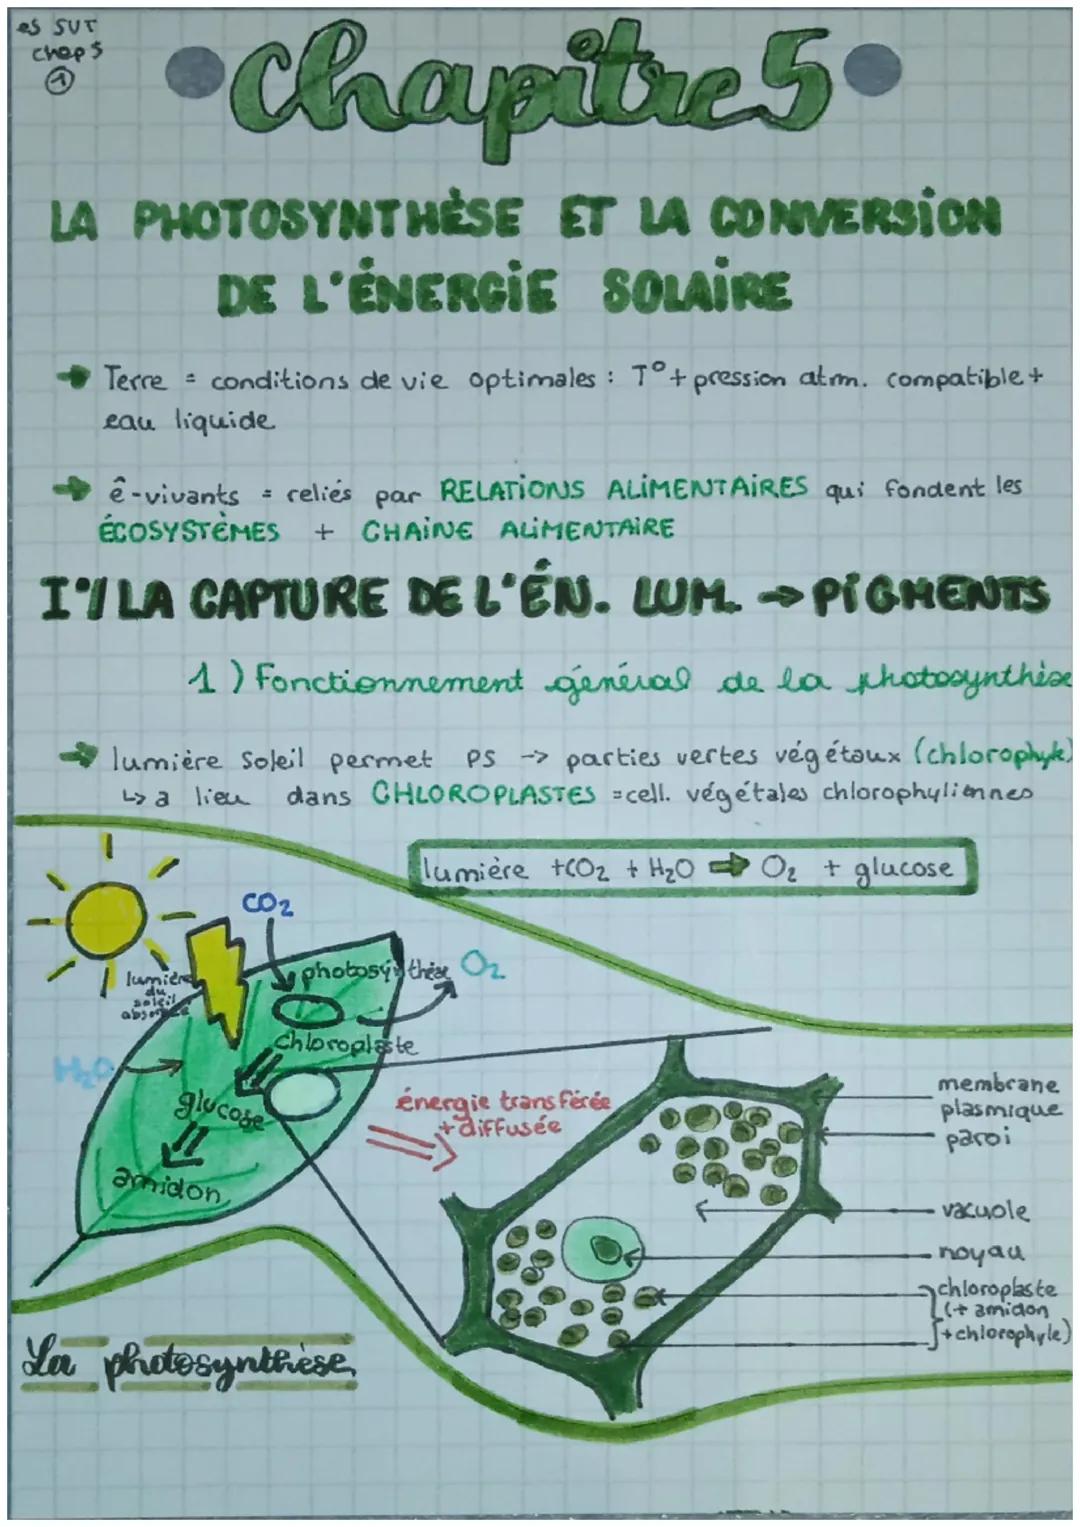 es SVT
chap 5
1
Chapitre 5
LA PHOTOSYNTHÈSE ET LA CONVERSION
DE L'ÉNERGIE SOLAIRE
→ Terre = conditions de vie optimales : T° + pression atm. compatible +
eau liquide
→ ê-vivants = reliés par RELATIONS ALIMENTAIRES qui fondent les
ÉCOSYSTÈMES + CHAINE ALIMENTAIRE
I°/ LA CAPTURE DE L'ÉN. LUM. → PIGMENTS
1) Fonctionnement général de la photosynthèse
→ lumière Soleil permet PS → parties vertes végétaux (chlorophyle)
↳ a lieu dans CHLOROPLASTES = cell. végétales chlorophyliennes
lumière + CO2 + H2O → O2 + glucose
CO2
lumière
du
soleil
absorbée
photosynthèse
O2
chloroplaste
H2O
glucose
amidon
énergie transférée
+ diffusée
membrane
plasmique
paroi
vacuole
noyau
chloroplaste
(+ amidon
+ chlorophyle)
La photosynthèse